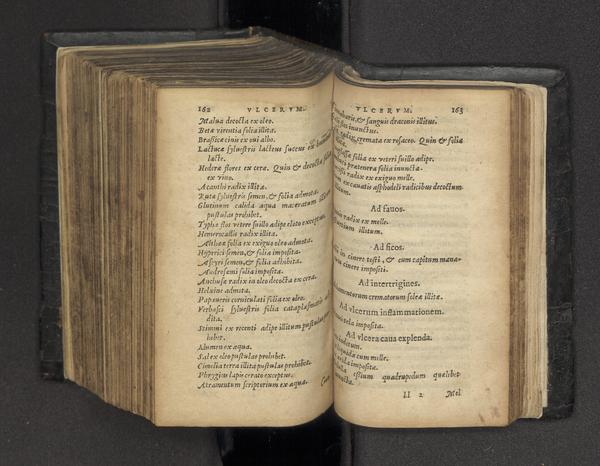 162 VLCERVM.
Malua decocta ex oleo.
Betæ virentia folia illita.
Brassicæ cinis ex oui albo.
Lactucæ syluestris lacteus succus ex
lacte.
Hederæ flores ex cera. Quin & decocta folia
ex vino.
Acanthi radix illita.
Rutæ syluestris semen, & folia admota.
Glutinum calida aqua maceratum illitum
pustulas prohibet.
Typhæ flos vetere suillo adipe eloto exceptus.
Hemerocallis radix illita.
Altheæ folia ex exiguo oleo admota.
Hyperici semen, & folia imposita.
Ascyri semen, & folia adhibita.
Androsemi folia imposita.
Anchusæ radix in oleo decocta ex cera.
Helxine admota.
Papaueris corniculati folia ex oleo.
Verbasci syluestris folia cataplasmatis
dita.
Stimmi ex recenti adipe illitum pustulas
hibet.
Alumen ex aqua.
Sal ex oleo pustulas prohibet.
Cimolia terra illita pustulas prohibet.
Phrygius lapis cerato exceptus.
Atramentum scriptorium ex aqua.
VLCERVM. 163
& sanguis draconis illitus.
inunctus.
cremata ex rosaceo. Quin & folia
folia ex veteri suillo adipe.
prætenera folia inuncta.
radix ex exiguo melle.
ex cauatis asphodeli radicibus decoctum
Ad fauos.
radix ex melle.
illitum.
Ad ficos.
in cinere tosti, & cum capitum mana-
cinere impositi.
Ad intertrigines.
crematorum soleæ illitæ.
Ad vlcerum inflammationem.
tela imposita.
Ad vlcera caua explenda.
cum melle.
imposita.
quadrupedum quælibet
ll 2 Mel